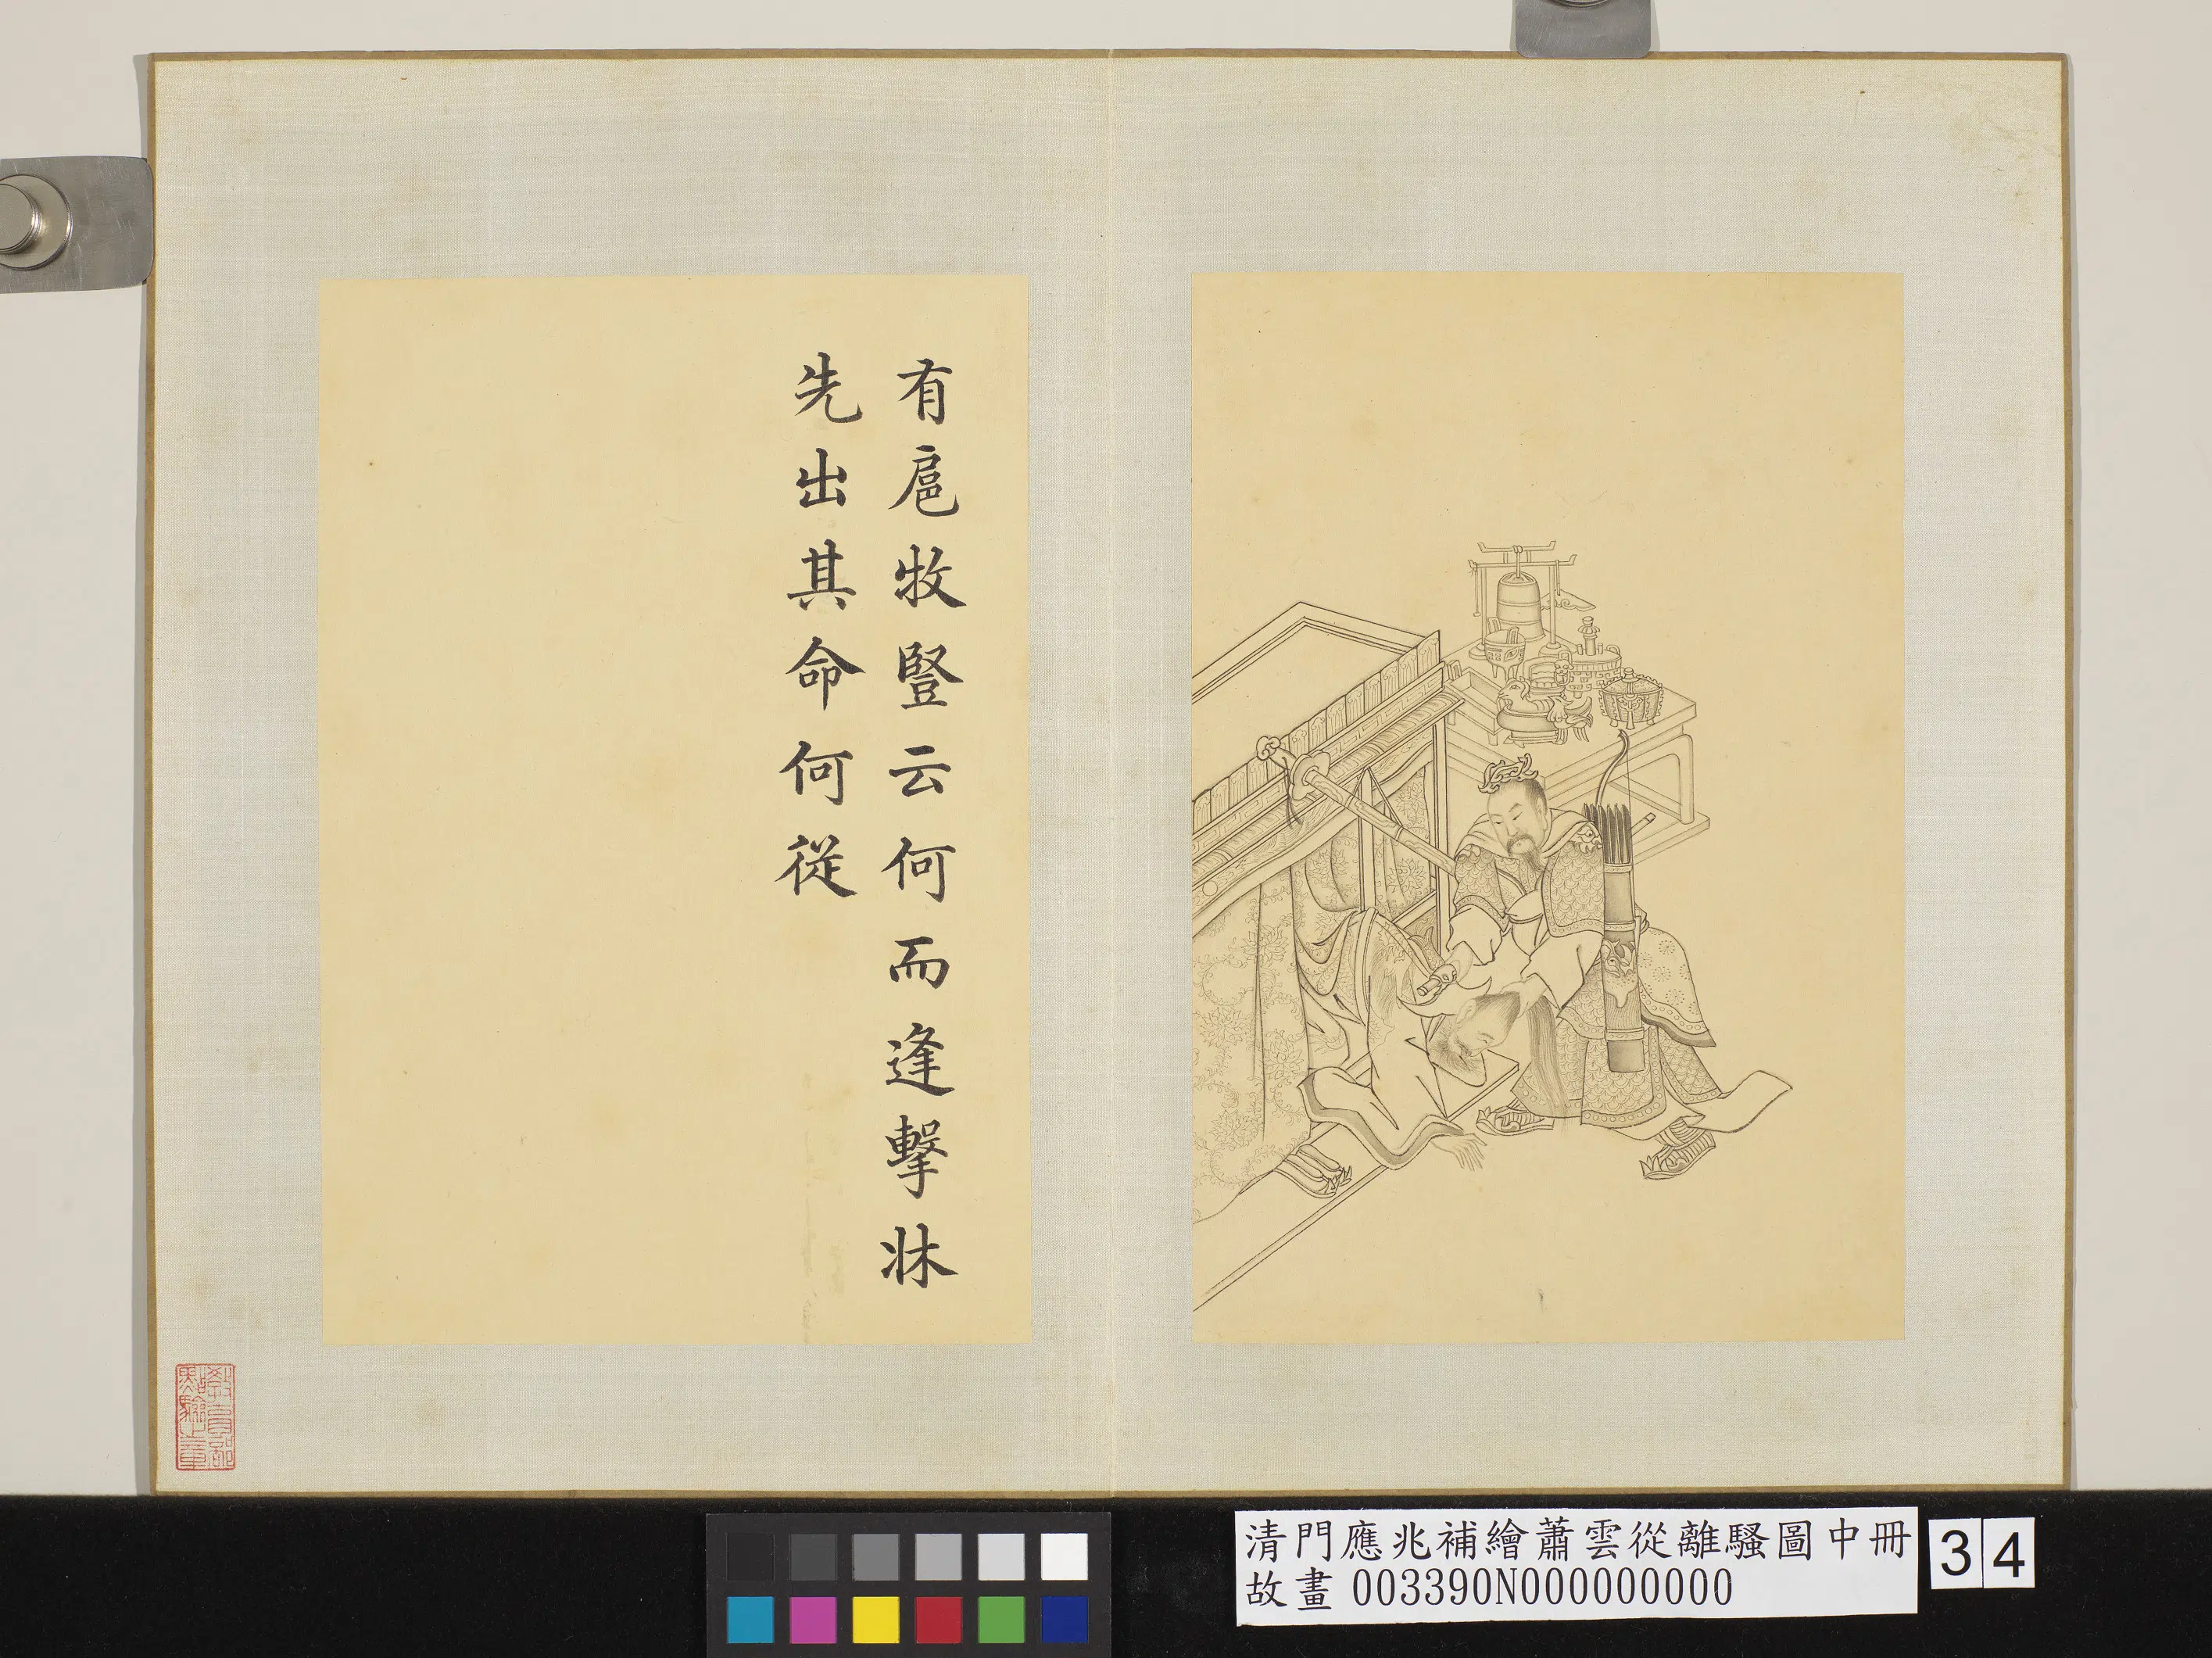 有扈牧豎云何而逢擊牀
先出其命何從
教育部
點驗之章
清門應兆補繪蕭雲從離騷圖中冊
故畫 003390N000000000
34